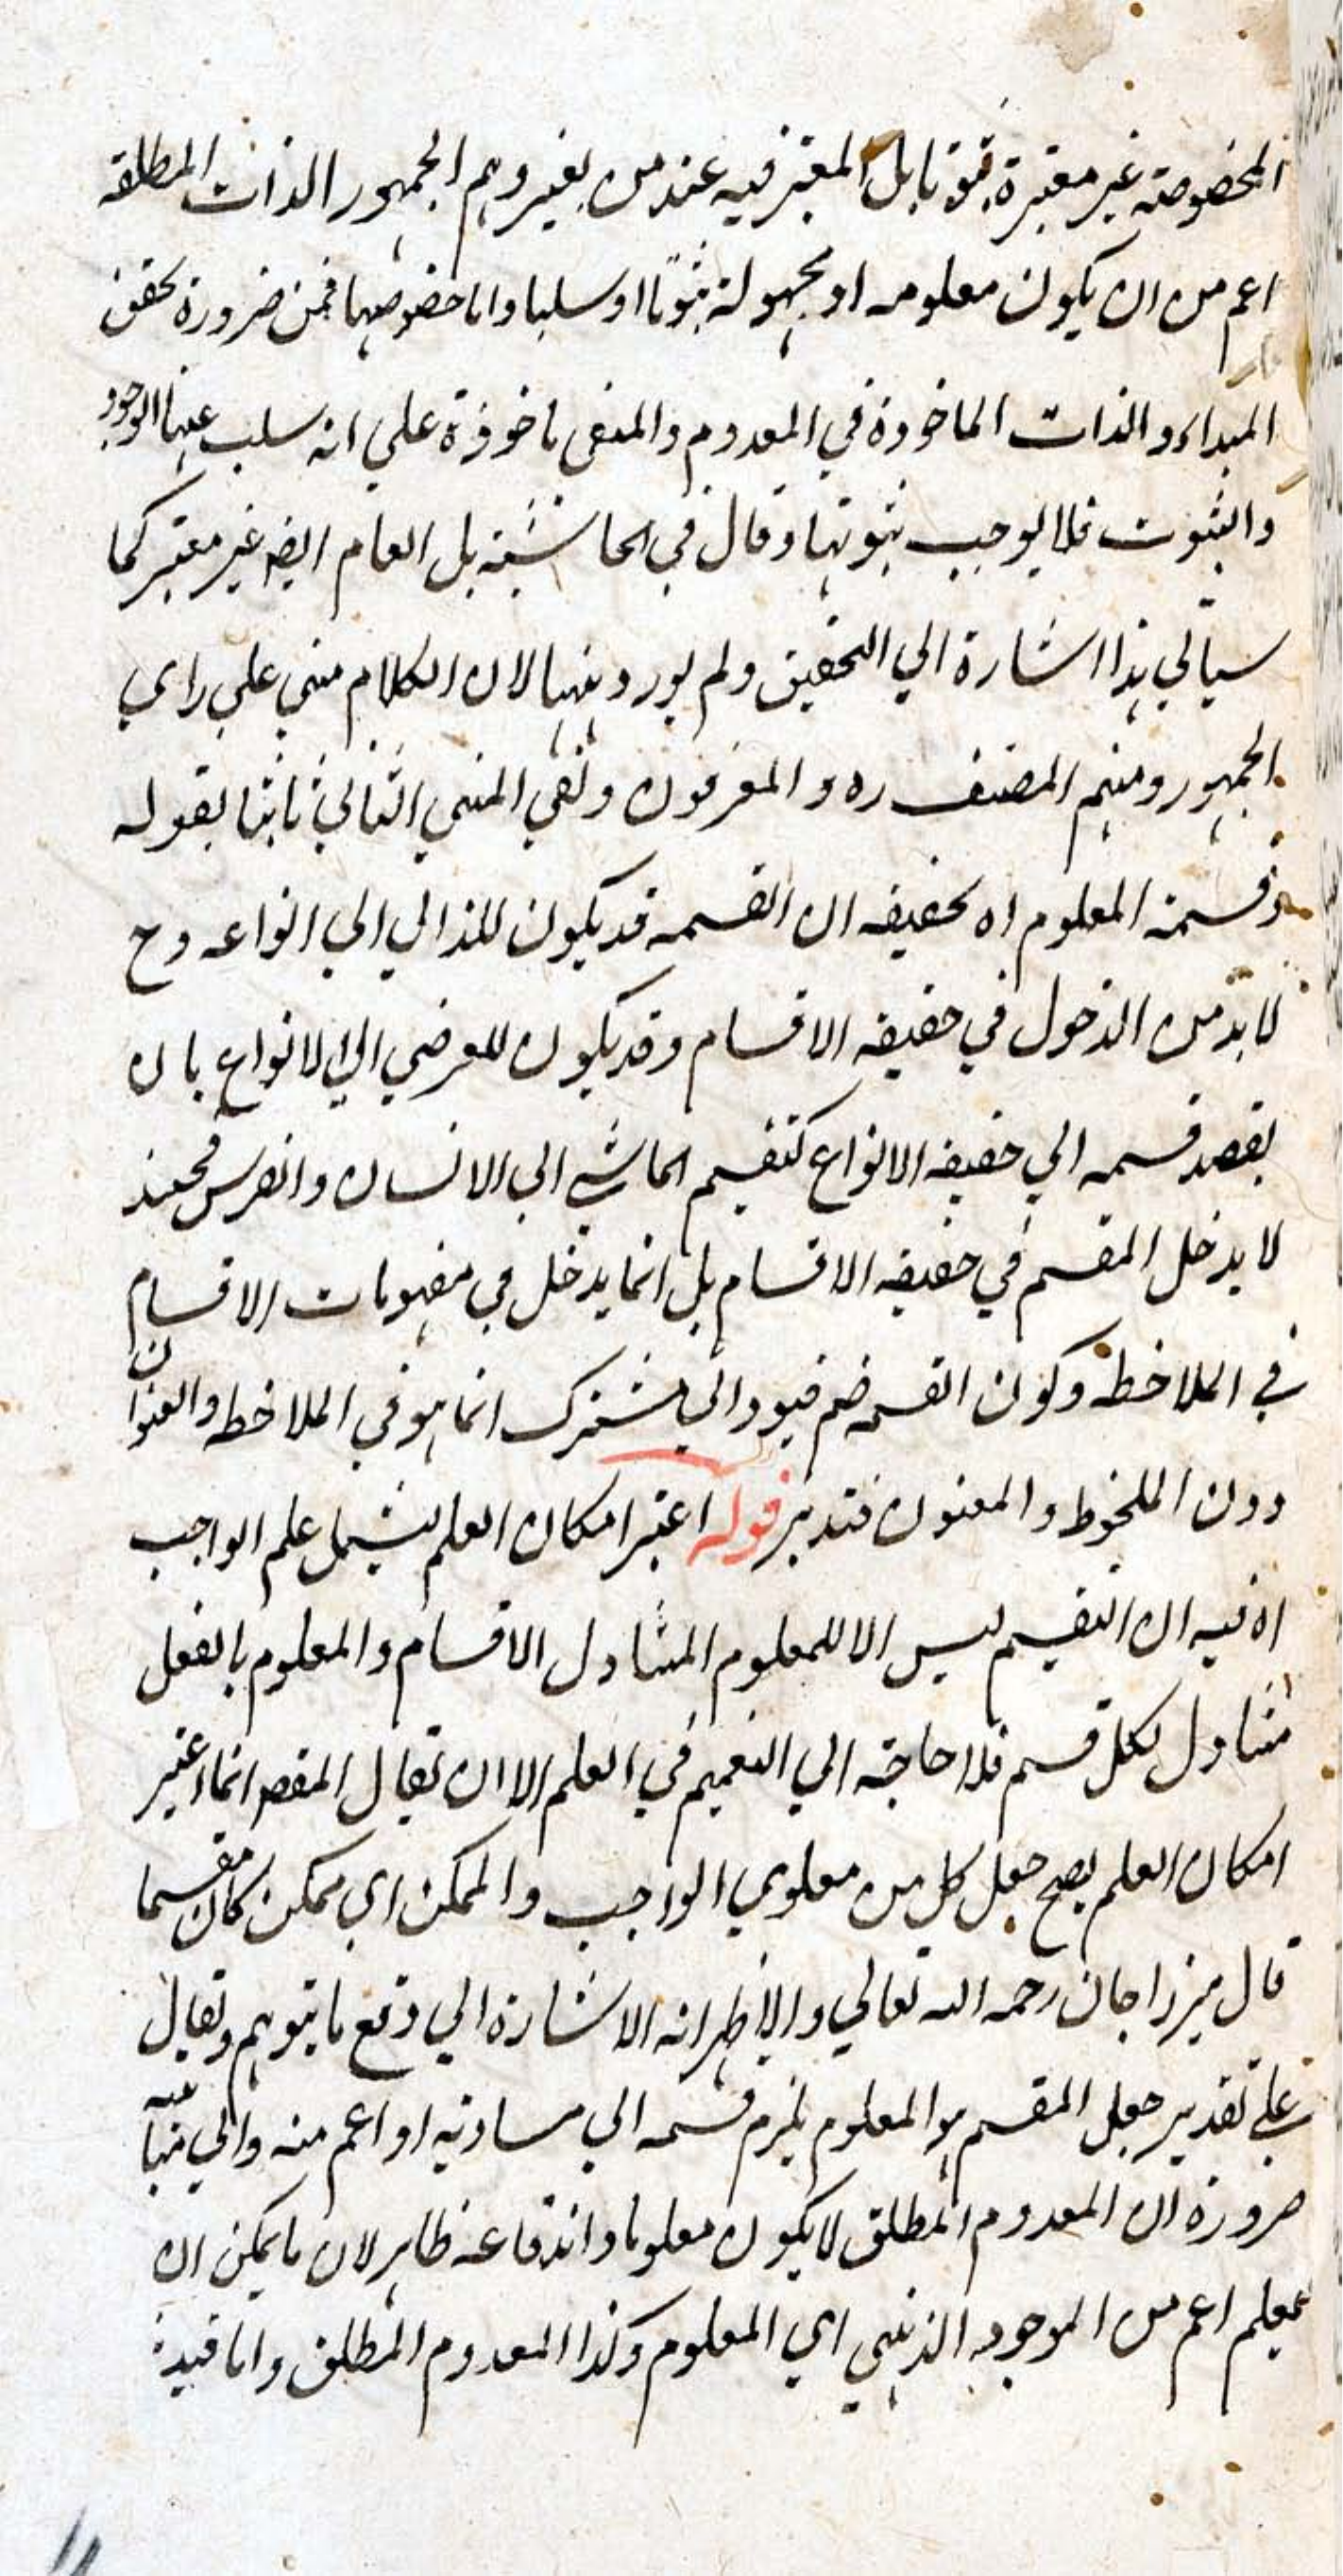 المخصوصة غير معتبرة ثبوتا بل المعتبر فيه عند من يغيرهم الجمهور الذات المطلقة
اعم من ان يكون معلومه او مجهولة ثبوتا او سلبا واما خصوصها فمن ضرورة تحقق
المبداء والذات الماخوذة في المعدوم والمنفى ماخوذة على انه سلب عنها الوجود
والثبوت فلا يوجب ثبوتها وقال في الحاشية بل العام ايضا غير معتبر كما
سياتي هذا اشارة الي التحقيق ولم يورد الكلام مبني على راي
الجمهور ومنهم المصنف ره و المعرفون ونفى المبني الثاني ثانيا بقوله
وقسمة المعلوم اه تحقيقه ان القسمه قد يكون للذاتي الي انواعه وح
لا بد من الدخول في حقيقه الاقسام وقد يكون للعرضي الي الانواع بان
يقصد قسمه الي حقيقه الانواع كتقسيم الماشي الي الانسان والفرس فحينئذ
لا يدخل المقسم في حقيقه الاقسام بل انما يدخل في مفهومات الاقسام
في الملاحظة وكون القسمه ضم قيود الي مشترك انما هو في الملاحظه والعنوان
دون الملحوظ والمعنون فتدبر قوله اعتبر امكان العلم ليشمل علم الواجب
اه فيه ان التقسيم ليس الا للمعلوم المتناول الاقسام والمعلوم بالفعل
متناول لكل قسم فلا حاجة الي التعميم في العلم الا ان يقال المقصد انما اعتبر
امكان العلم يصح جعل كل من معلومي الواجب والممكن اي ممكن كان مقسما
قال ميرزاجان رحمه الله تعالي والاظهر انه الاشارة الي دفع ما يتوهم ويقال
على تقدير جعل المقسم هو المعلوم يلزم قسمه الي مساويه او اعم منه والي مباينه
ضرورة ان المعدوم المطلق لا يكون معلوما واندفاعه ظاهر لان ما يمكن ان
يعلم اعم من الموجود الذهني اي المعلوم وكذا المعدوم المطلق وانا قيده